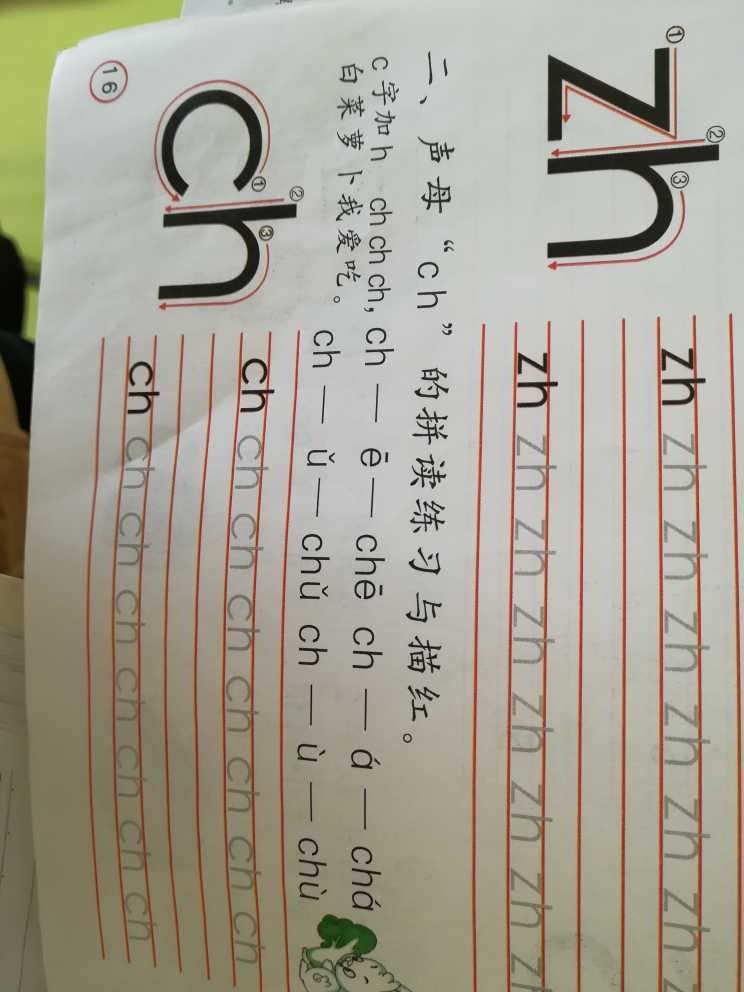 ① ② ③
zh
zh zh zh zh zh zh zh z
zh zh zh zh zh zh zh zh
二、声母“ch”的拼读练习与描红。
c字加h，ch ch ch, ch — ē — chē ch — á — chá
白菜萝卜我爱吃。 ch — ǔ — chǔ ch — ù — chù
① ② ③
ch
ch ch ch ch ch ch ch ch
ch ch ch ch ch ch ch ch
16